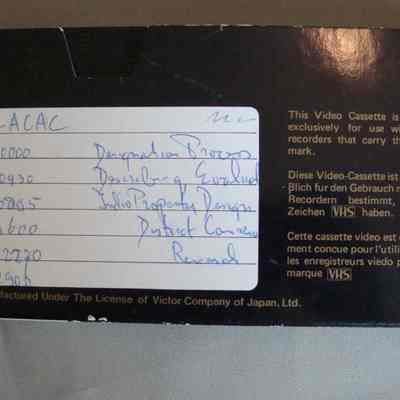 -ACAC
0000 Designation Process
0930 Describing Evaluat
Indiv Properties Design
1600 District
2220
2906
This Video Cassette is
exclusively for use wi
recorders that carry th
mark.
Diese Video-Cassette ist
lich fur den Gebrauch m
Recordern bestimmt,
Zeichen VHS haben.
Cette cassette video est
ment concue pour l'utili
les enregistreurs viedo p
marque VHS
factured Under The License of Victor Company of Japan, Ltd.